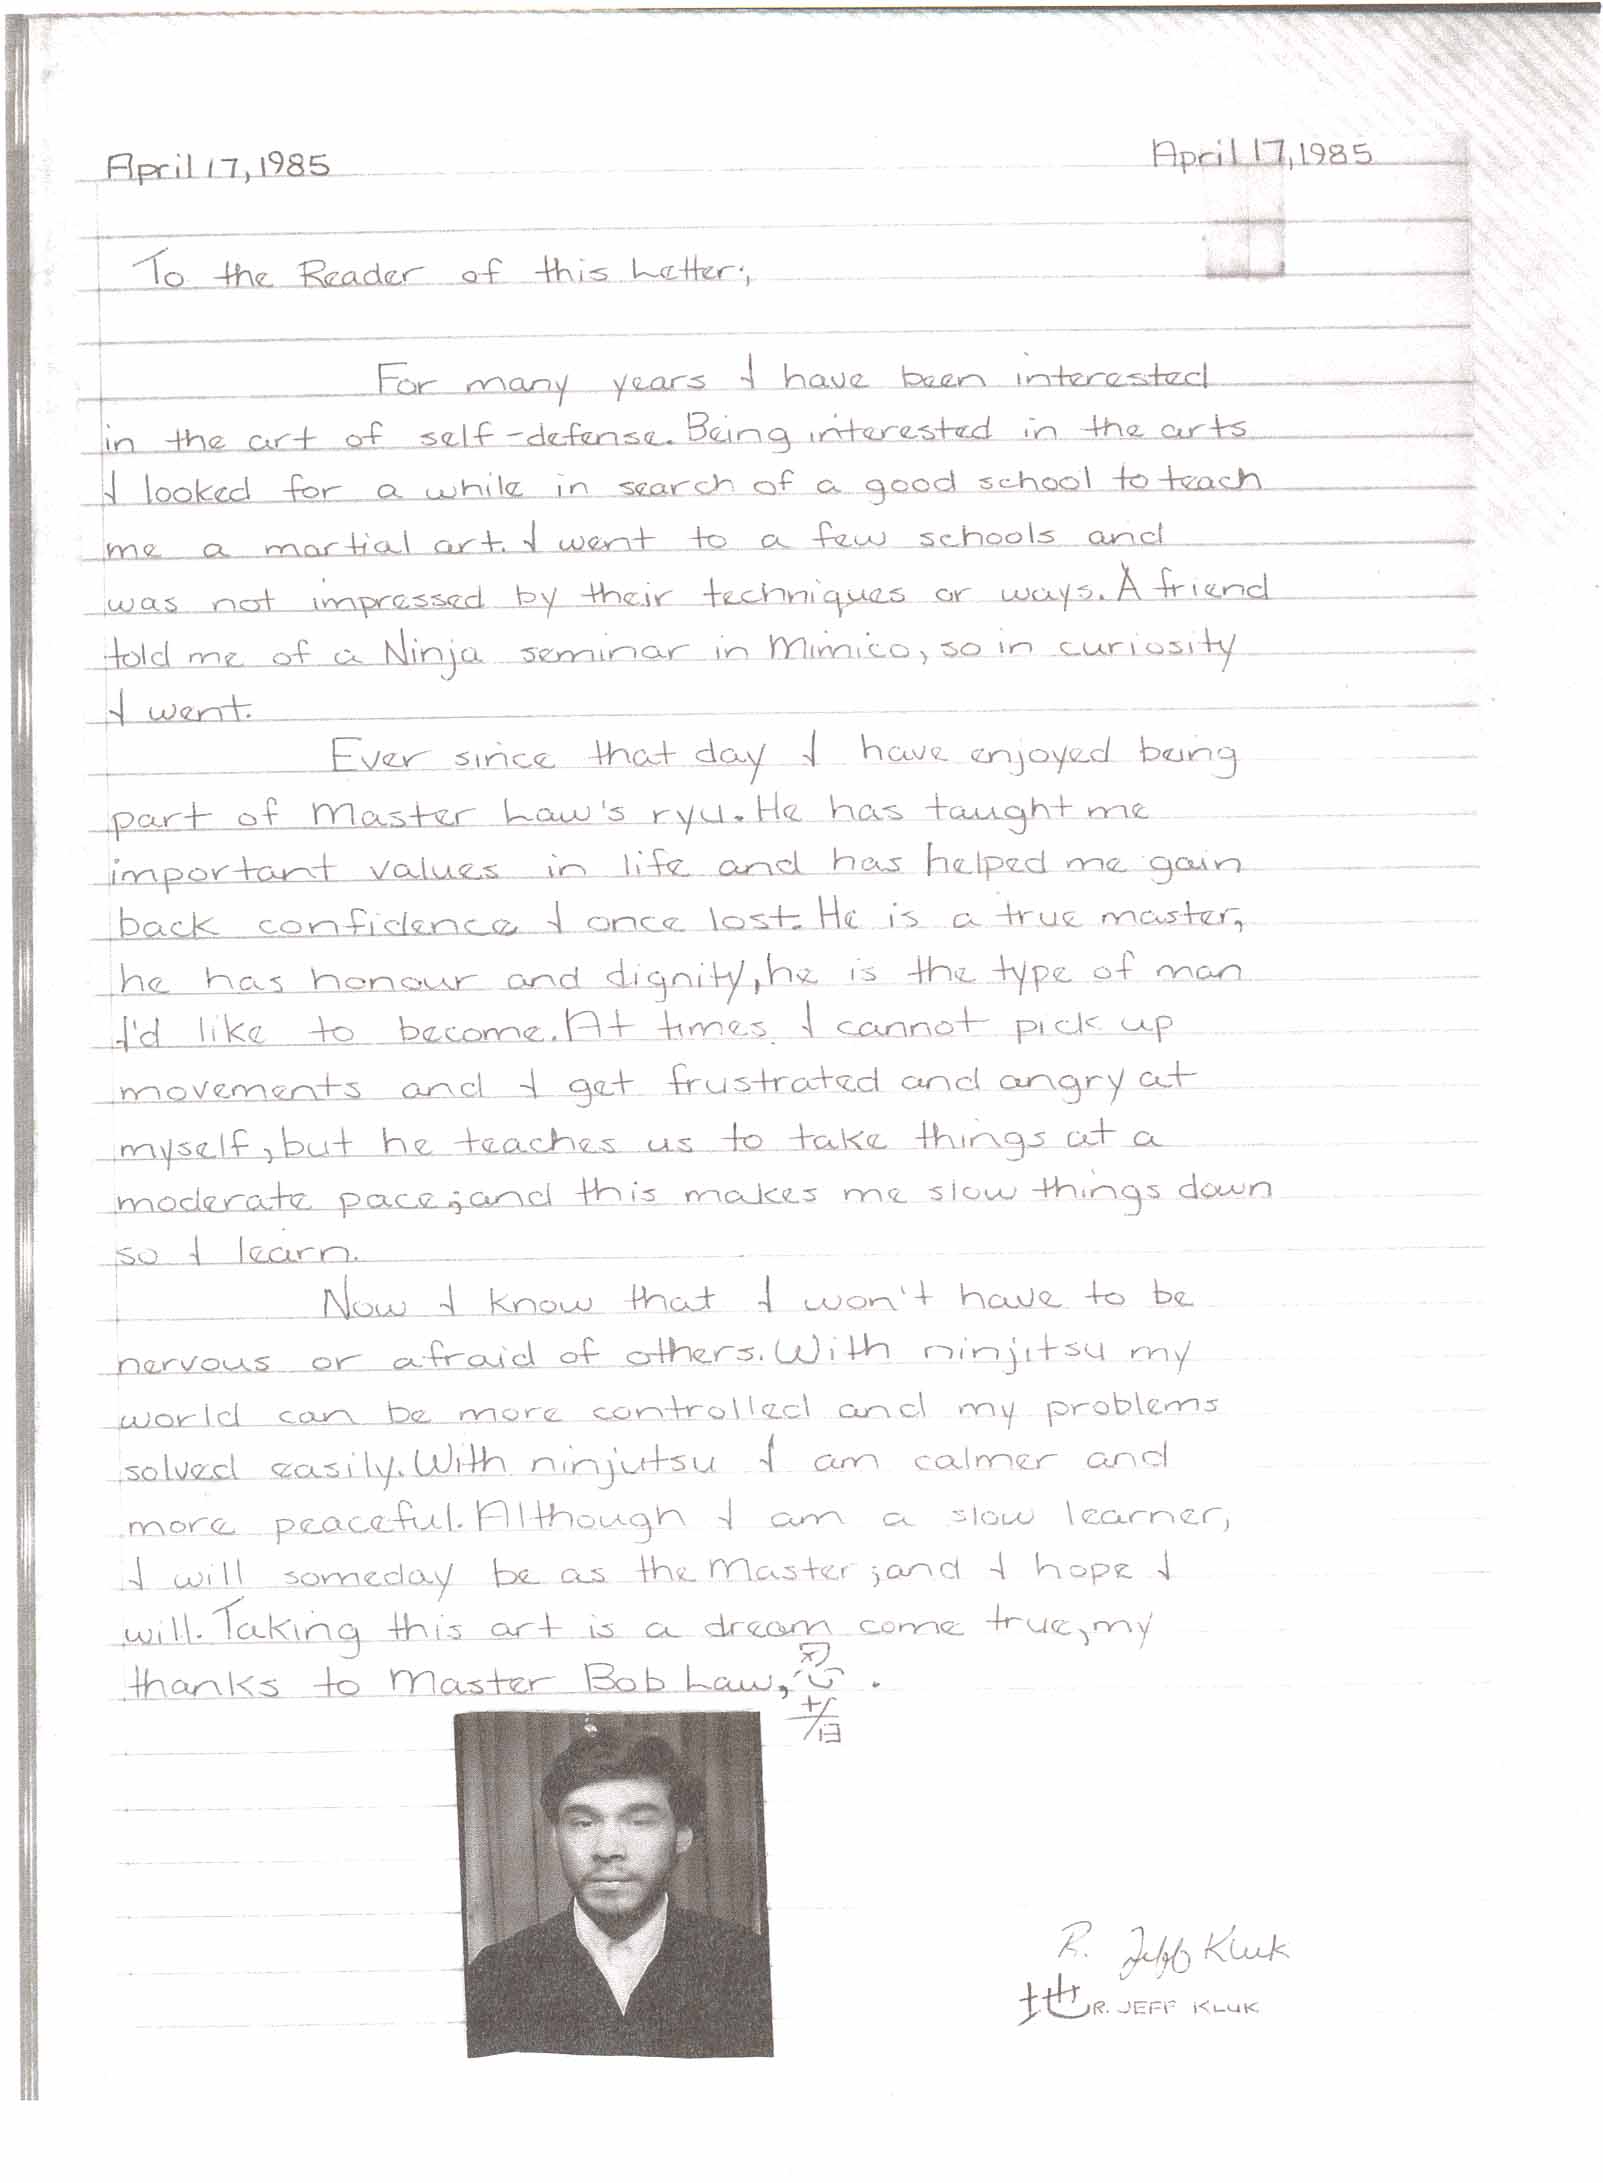 April 17, 1985
April 17, 1985
To the Reader of this Letter;,
For many years I have been interested
in the art of self-defense. Being interested in the arts
I looked for a while in search of a good school to teach
me a martial art. I went to a few schools and
was not impressed by their techniques or ways. A friend
told me of a Ninja seminar in Mimico, so in curiosity
I went.
Ever since that day I have enjoyed being
part of Master Law's ryu. He has taught me
important values in life and has helped me gain
back confidence I once lost. He is a true master,
he has honour and dignity, he is the type of man
I'd like to become. At times I cannot pick up
movements and I get frustrated and angry at
myself, but he teaches us to take things at a
moderate pace; and this makes me slow things down
so I learn.
Now I know that I won't have to be
nervous or afraid of others. With ninjitsu my
world can be more controlled and my problems
solved easily. With ninjutsu I am calmer and
more peaceful. Although I am a slow learner,
I will someday be as the Master; and I hope I
will. Taking this art is a dream come true, my
thanks to Master Bob Law, 忍.
R. Jeff Kluk
地 R. JEFF KLUK